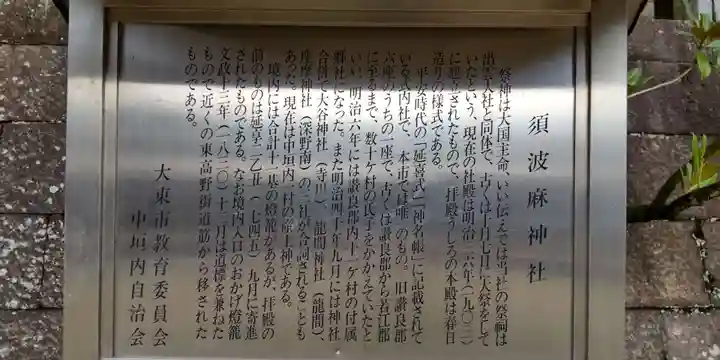 須波麻神社
祭神は大国主命、いい伝えでは当社の祭祠は
出雲大社と同体で、古くは十月七日に大祭をして
いたという、現在の社殿は明治三六年（一九〇三）
に建立されたもので、拝殿うしろの本殿は春日
造りの様式である。
平安時代の「延喜式」「神名帳」に記載されて
いる式内社で、本市では唯一のもの。旧讃良郡
六座のうちの一座で、古くは讃良郡から若江郡
に至るまで、数十ケ村の氏子をかかえていたと
いい、明治六年には讃良郡内十一ケ村の付属
郷社になった。また明治四十年九月には神社
合併で大谷神社（寺川）、龍間神社（龍間）、
座摩神社（深野南）の三社が合祠されることも
あった。現在は中垣内一村の産土神である。
境内には合計十一基の燈籠があるが、拝殿の
前のものは延享二乙丑（一七四五）九月に寄進
されたものである。なお境内入口のおかげ燈籠
文政十三年（一八三〇）十三月は道標を兼ねた
もので近くの東高野街道筋から移された
ものである。
大東市教育委員会
中垣内自治会